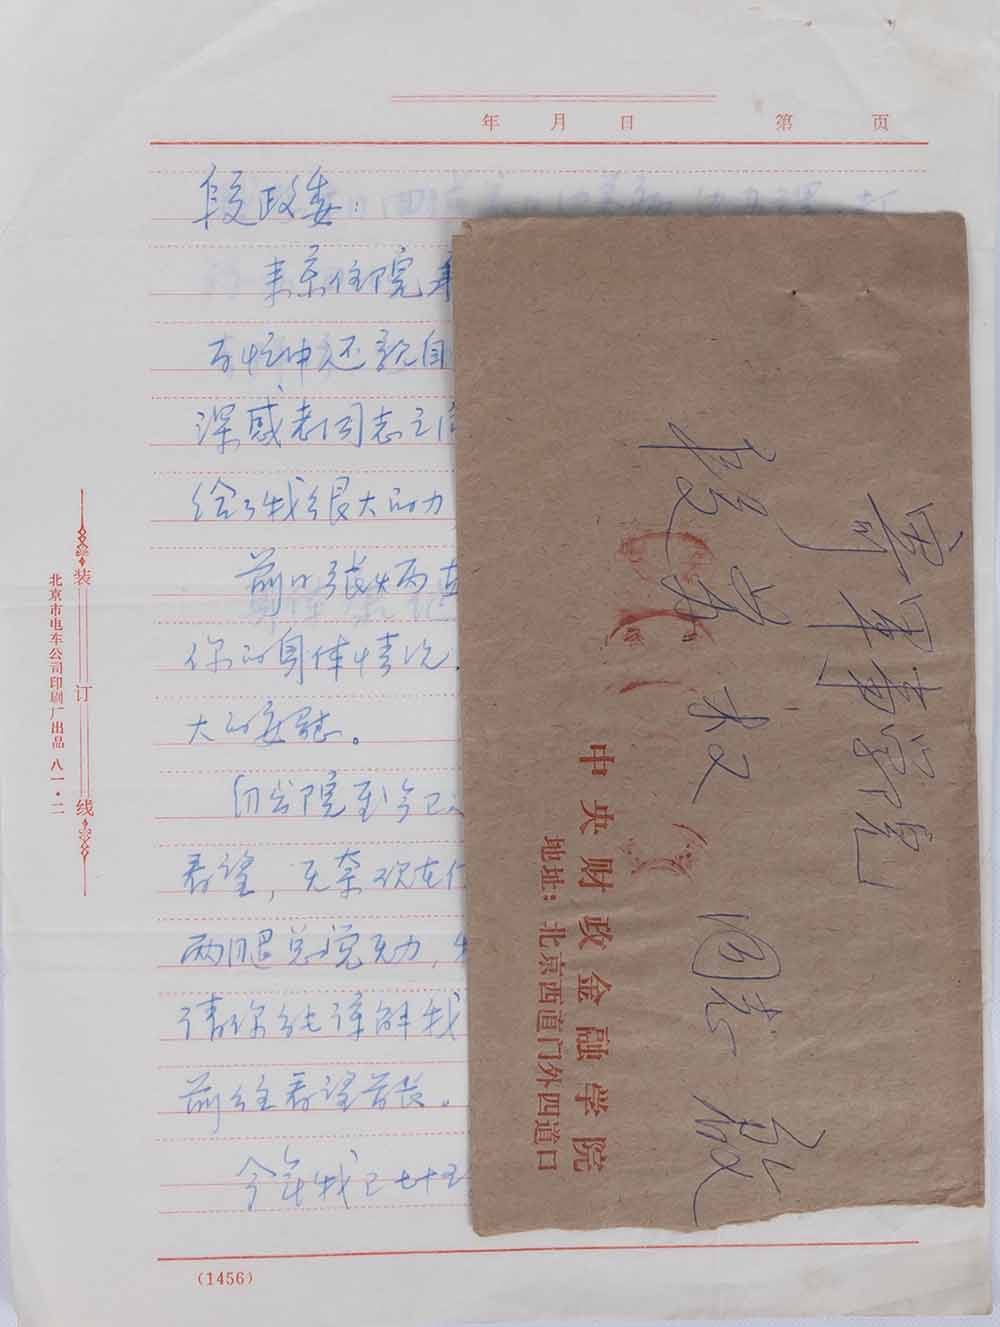 年 月 日 第 页
段政委：
来京住院承
百忙中还亲自
深感老同志之间
给了我很大的力
前日张炳
你的身体情况
大的安慰。
自出院至今已
看望，无奈现在住
两腿总觉无力，
请你能谅解我
前往看望首长。
今年我已七十五
(1456)
装订线
北京市电车公司印刷厂出品 八一·二
军事学院
段苏权 同志 启
中央财政金融学院
地址：北京西直门外四道口